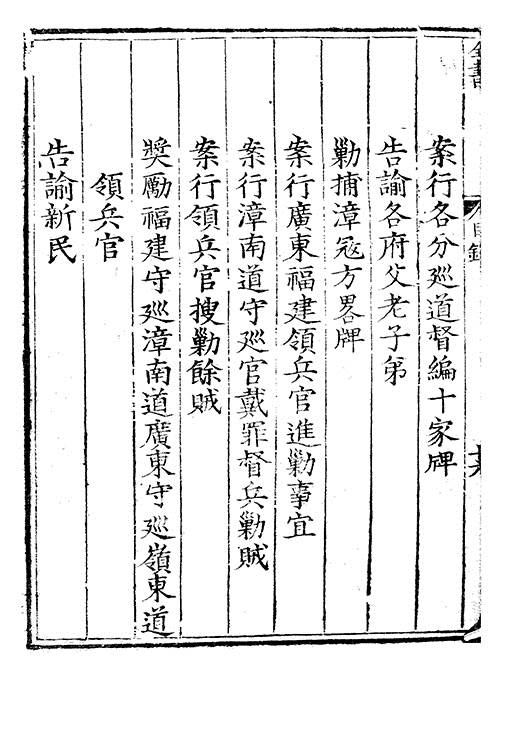 案行各分廵道督編十家牌
告諭各府父老子弟
勦捕漳冦方畧牌
案行廣東福建領兵官進勦事宜
案行漳南道守廵官戴罪督兵勦賊
案行領兵官搜勦餘賊
奬勵福建守廵漳南道廣東守廵嶺東道
領兵官
告諭新民